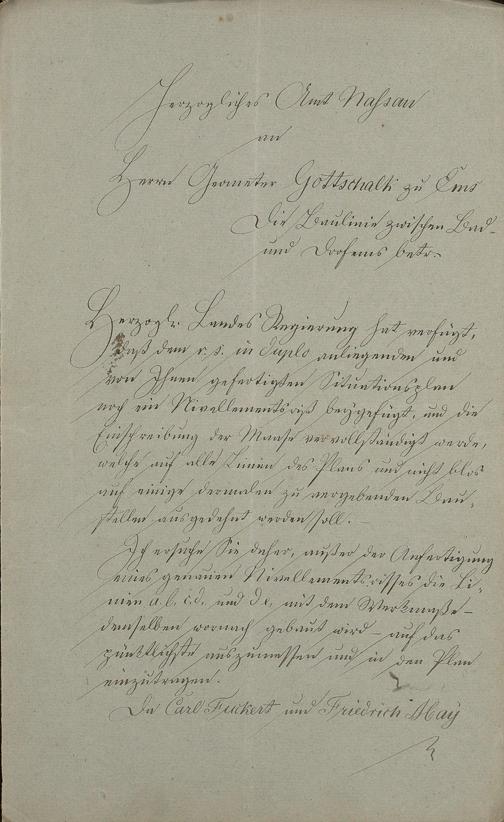 Herzogliches Amt Nassau
an
Herrn Geometer Gottschalk zu Ems
Die Baulinie zwischen Bad-
und Dorfems betr.
Herzogl. Landes Regierung hat verfügt,
daß dem r. s. in duplo anliegenden und
von Ihnen gefertigten Situationsplan
noch ein Nivellementsriß beygefügt, und die
Einschreibung der Maase vervollständigt werde,
welche auf alle Linien des Plans und nicht blos
auf einige dermalen zu vergebenden Bau-
stellen ausgedehnt werden soll.
Ich ersuche Sie daher, außer der Anfertigung
eines genauen Nivellementsrisses die Li-
nien a,b, c,d, und d,e, mit dem Werkmaße -
demselben wornach gebaut wird - auf das
pünktlichste auszumessen und in den Plan
einzutragen.
Da Carl Fuckert und Friedrich May